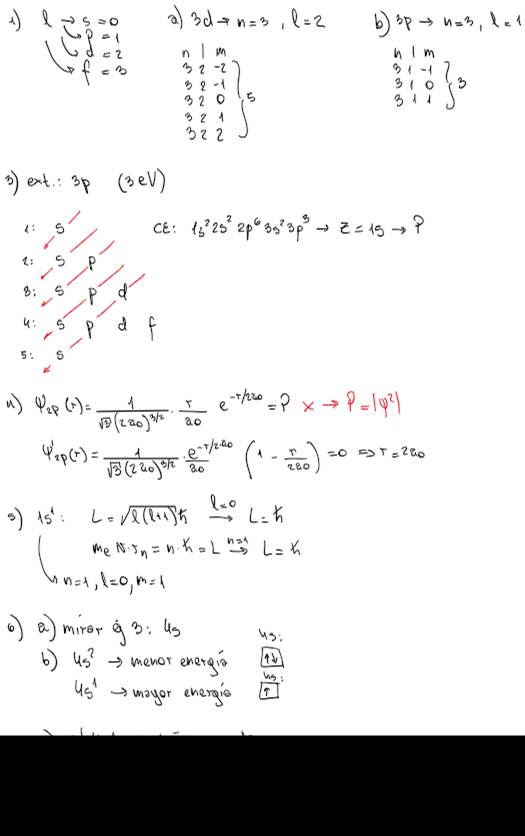 1) l → s = 0
p = 1
d = 2
f = 3
a) 3d → n = 3 , l = 2
n l m
3 2 -2
3 2 -1
3 2 0
3 2 1
3 2 2
5
b) 3p → n = 3 , l = 1
n l m
3 1 -1
3 1 0
3 1 1
3
3) ext.: 3p (3eV)
1: s
2: s p
3: s p d
4: s p d f
5: s
CE: 1s² 2s² 2p⁶ 3s² 3p³ → Z = 15 → P
4) Ψ₂p (r) = 1/(√3 (2a₀)^3/2) · r/a₀ e^-r/2a₀ = P x → P = |Ψ²|
Ψ'₂p(r) = 1/(√3 (2a₀)^3/2) · e^-r/2a₀/a₀ (1 - r/2a₀) = 0 ⇒ r = 2a₀
5) 1s¹: L = √l(l+1) ħ l=0→ L = ħ
me v · rₙ = n · ħ = L n=1→ L = ħ
n = 1 , l = 0 , m = 1
6) a) mirar ej 3: 4s
b) 4s² → menor energía 4s: ↑↓
4s¹ → mayor energía 4s: ↑